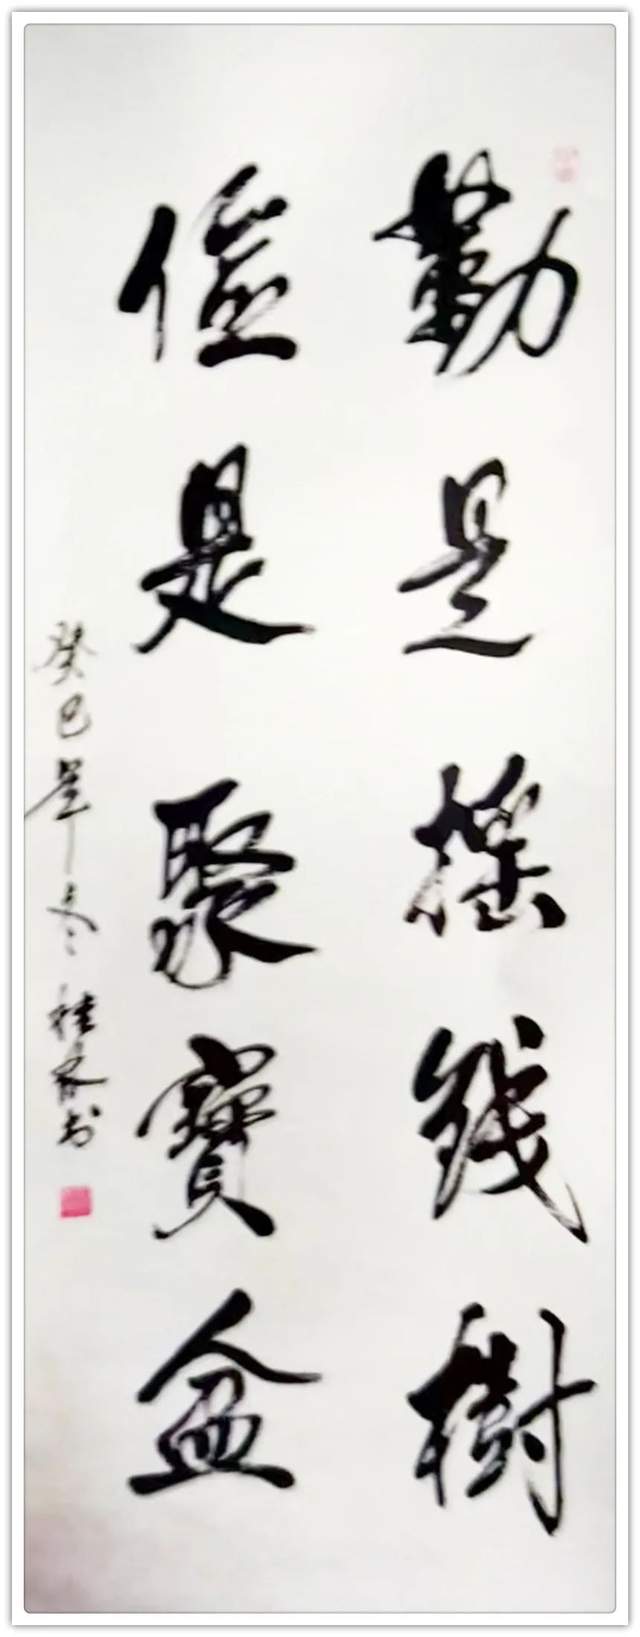 勤是搖錢樹
儉是聚寶盆
癸巳年冬桂春书